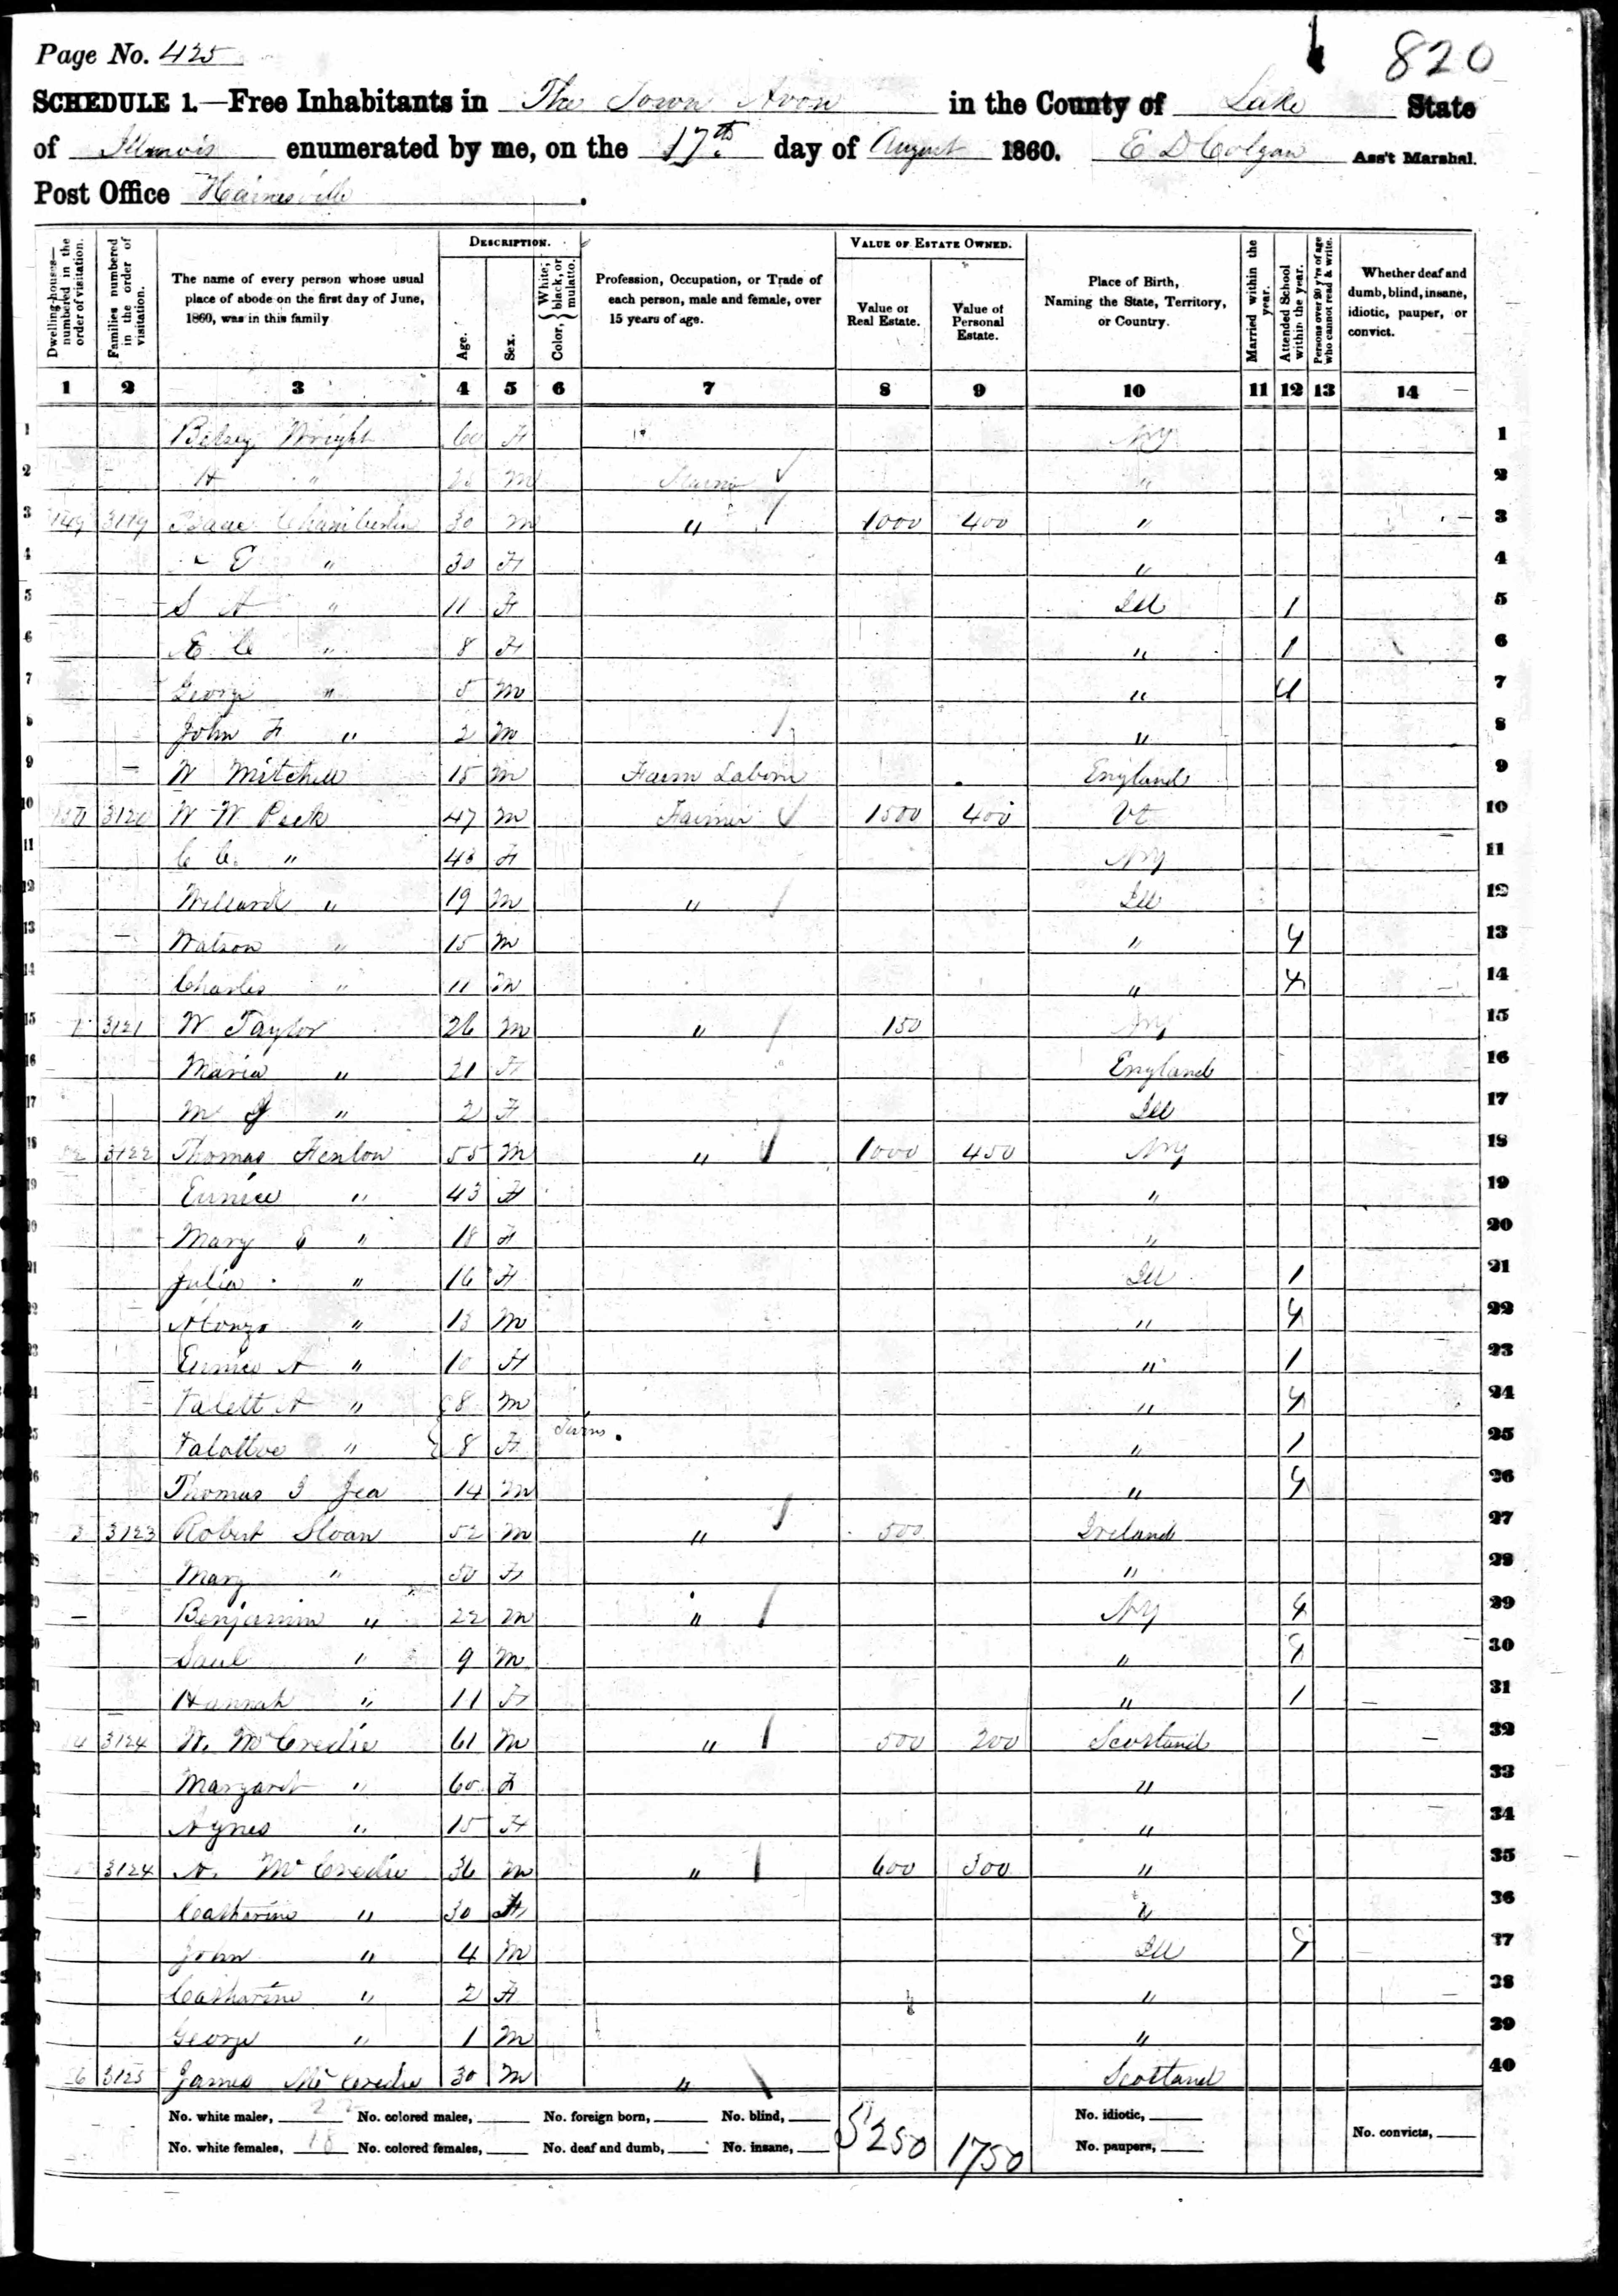 Page No. 425 820
SCHEDULE 1.—Free Inhabitants in The Town Avon in the County of Lake State
of Illinois enumerated by me, on the 17th day of August 1860. E D Colgan Ass't Marshal.
Post Office Hainesville.
DESCRIPTION. VALUE OF ESTATE OWNED.
Dwelling-houses—numbered in the order of visitation. Families numbered in the order of visitation. The name of every person whose usual place of abode on the first day of June, 1860, was in this family Age. Sex. Color, { White, black, or mulatto. Profession, Occupation, or Trade of each person, male and female, over 15 years of age. Value of Real Estate. Value of Personal Estate. Place of Birth, Naming the State, Territory, or Country. Married within the year. Attended School within the year. Persons over 20 y'rs of age who cannot read & write. Whether deaf and dumb, blind, insane, idiotic, pauper, or convict.
1 2 3 4 5 6 7 8 9 10 11 12 13 14
1 Betsey Wright 60 F NY 1
2 H " M Farmer " 2
3 149 3119 Isaac Chamberlin 30 M " 1000 400 " 3
4 E " 30 F " 4
5 S A " 11 F Ill 1 5
6 " 8 F " 1 6
7 George " 5 M " 7
8 John F " 2 M " 8
9 W Mitchell 15 M Farm Labour England 9
10 150 3120 W W Peck 47 M Farmer 1500 400 Vt 10
11 " F NY 11
12 Willard " 19 M " Ill 12
13 Watson " 15 M " 13
14 Charles " 11 M " 14
15 1 3121 W Taylor 26 M " 150 NY 15
16 Maria " 21 F England 16
17 M J " 2 F Ill 17
18 3122 Thomas Henlow 55 M " 1000 450 NY 18
19 Eunice " 43 F " 19
20 Mary E " 18 F " 20
21 Julia " 16 F Ill 1 21
22 Alonzo " 13 M " 22
23 Eunice A " 10 F " 1 23
24 Valett A " 8 M " 24
25 " 8 F Twins. " 1 25
26 Thomas J 14 M " 26
27 3 3123 Robert Sloan 52 M " 500 Ireland 27
28 Mary " 50 F " 28
29 Benjamin " 22 M " NY 29
30 Saul " 9 M " 30
31 Hannah " 11 F " 1 31
32 4 3124 W. McCredie 61 M " 500 200 Scotland 32
33 Margaret " 60 F " 33
34 Agnes " 15 F " 34
35 3124 A. McCredie 36 M " 600 300 " 35
36 Catharine " 30 F " 36
37 John " 4 M Ill 37
38 Catharine " 2 F " 38
39 George " 1 M " 39
40 6 3125 James McCredie 30 M " Scotland 40
No. white males, 22 No. colored males, No. foreign born, No. blind, 5250 1750 No. idiotic,
No. white females, 18 No. colored females, No. deaf and dumb, No. insane, No. paupers, No. convicts,